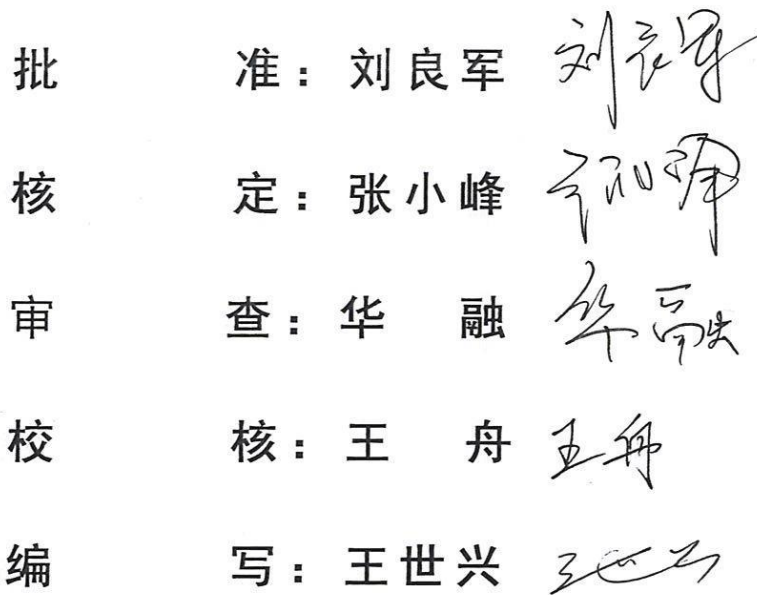 批 准：刘良军 刘良军
核 定：张小峰 张小峰
审 查：华 融 华融
校 核：王 舟 王舟
编 写：王世兴 王世兴